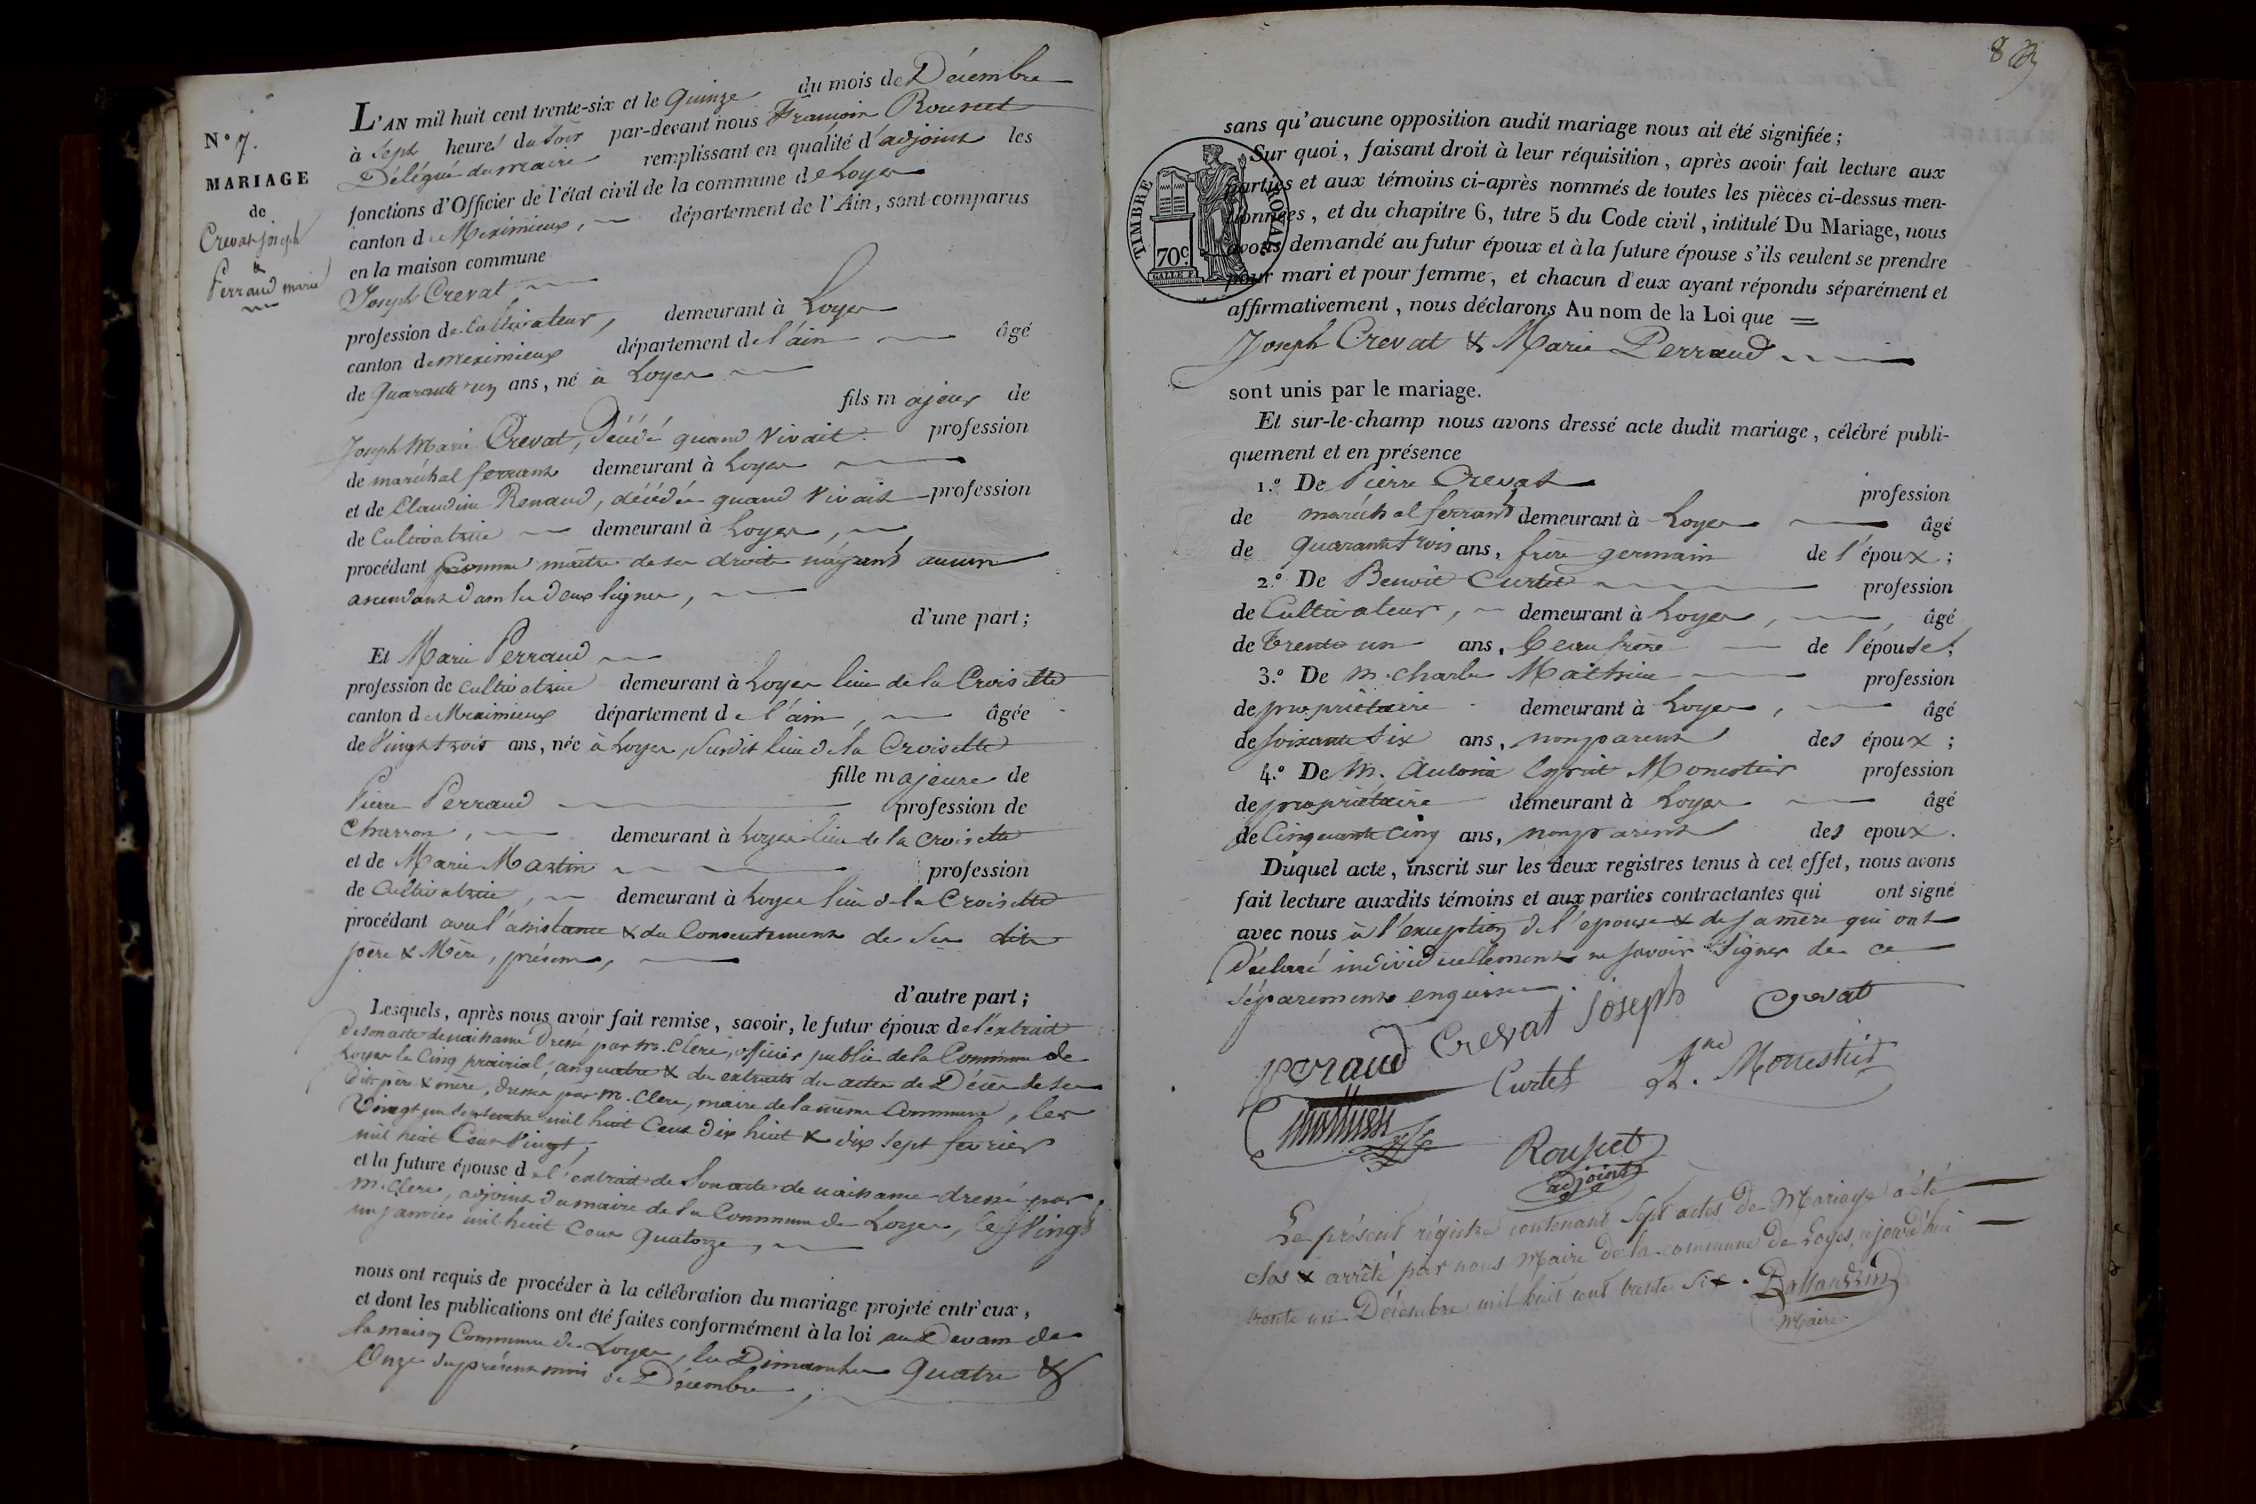 N° 7.
MARIAGE
de
Crevat joseph
&
Perraud marie
L'AN mil huit cent trente-six et le Quinze du mois de Décembre
à Sept heures du Soir par-devant nous François Rousset
Délégué du maire remplissant en qualité d'adjoint les
fonctions d'Officier de l'état civil de la commune de Loyes
canton de Meximieux, département de l'Ain, sont comparus
en la maison commune
Joseph Crevat
profession de Cultivateur, demeurant à Loyes
canton de meximieux département de l'ain âgé
de Quarante un ans, né à Loyes
fils majeur de
Joseph Marie Crevat, Décédé quand Vivait profession
de maréchal ferrant demeurant à Loyes
et de Claudine Renaud, décédée quand Vivait profession
de Cultivatrice demeurant à Loyes,
procédant comme maître de ses droits n'ayant aucun
ascendant dans les deux lignes,
d'une part ;
Et Marie Perraud
profession de cultivatrice demeurant à Loyes lieu de la Croisette
canton de Meximieux département de l'ain, âgée
de Vingt trois ans, née à Loyes, Susdit lieu de la Croisette
fille majeure de
Pierre Perraud profession de
Charron, demeurant à Loyes lieu de la croisette
et de Marie Martin profession
de Cultivatrice, demeurant à Loyes lieu de la Croisette
procédant avec l'assistance & du Consentement de Ses dits
père & Mère, présens,
d'autre part ;
Lesquels, après nous avoir fait remise, savoir, le futur époux de l'extrait
de son acte de naissance Dressé par m. Clerc, officier public de la Commune de
Loyes le Cinq prairial, an quatre & des extraits des actes de Décès de ses
dits père & mère, dressés par m. Clerc, maire de la même Commune, les
Vingt un Septembre mil huit Cent dix huit & dix Sept février
mil huit Cent Vingt ;
et la future épouse de l'extrait de Son acte de naissance dressé par
m. Clerc, adjoint du maire de la Commune de Loyes, le Vingt
un janvier mil huit Cent Quatorze,
nous ont requis de procéder à la célébration du mariage projeté entr'eux,
et dont les publications ont été faites conformément à la loi au Devant de
la maison Commune de Loyes, les Dimanches Quatre &
Onze du présent mois de Décembre ;
83
sans qu'aucune opposition audit mariage nous ait été signifiée ;
TIMBRE ROYAL
70c.
Sur quoi, faisant droit à leur réquisition, après avoir fait lecture aux
parties et aux témoins ci-après nommés de toutes les pièces ci-dessus men-
tionnées, et du chapitre 6, titre 5 du Code civil, intitulé Du Mariage, nous
avons demandé au futur époux et à la future épouse s'ils veulent se prendre
pour mari et pour femme, et chacun d'eux ayant répondu séparément et
affirmativement, nous déclarons Au nom de la Loi que
Joseph Crevat & Marie Perraud
sont unis par le mariage.
Et sur-le-champ nous avons dressé acte dudit mariage, célébré publi-
quement et en présence
1.° De Pierre Crevat profession
de maréchal ferrant demeurant à Loyes âgé
de quarante trois ans, frère germain de l'époux ;
2.° De Benoit Curtet profession
de Cultivateur, demeurant à Loyes, âgé
de trente un ans, beau frère de l'épouse ;
3.° De m. Charles Mathieu profession
de propriétaire demeurant à Loyes, âgé
de soixante Six ans, non parent des époux ;
4.° De m. Antoine Monestier profession
de propriétaire demeurant à Loyes âgé
de Cinquante Cinq ans, non parent des epoux.
Duquel acte, inscrit sur les deux registres tenus à cet effet, nous avons
fait lecture auxdits témoins et aux parties contractantes qui ont signé
avec nous à l'exception de l'epouse & de sa mère qui ont
Déclaré individuellement ne savoir Signer de ce
séparement enquises.
Crevat Joseph Crevat
Perraud Curtet Monestier
Mathieu
Rousset
adjoint
Le présent régistre contenant Sept actes de Mariage a été
clos & arrêté par nous Maire de la commune de Loyes, ce jourd'hui
trente un Décembre mil huit cent trente Six.
Maire